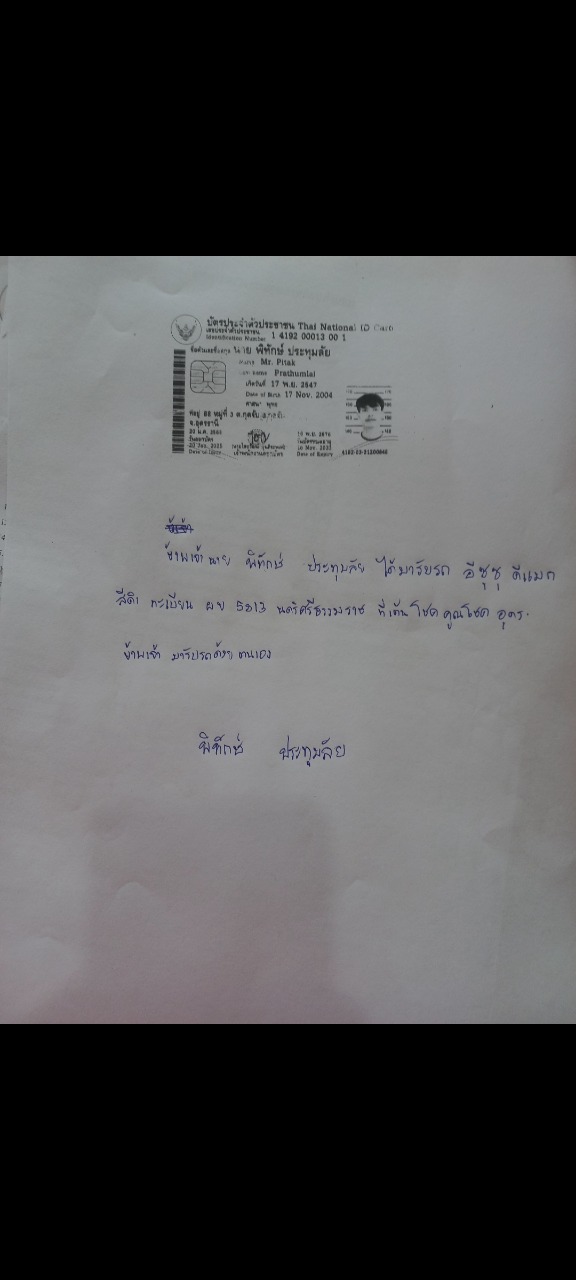 บัตรประจำตัวประชาชน Thai National ID Card
เลขประจำตัวประชาชน
Identification Number 1 4192 00013 00 1
ชื่อตัวและชื่อสกุล นาย พิทักษ์ ประทุมลัย
Name Mr. Pitak
Last name Prathumlai
เกิดวันที่ 17 พ.ย. 2547
Date of Birth 17 Nov. 2004
ศาสนา พุทธ
ที่อยู่ 88 หมู่ที่ 3 ต.กุดจับ อ.กุดจับ
จ.อุดรธานี
วันออกบัตร
Date of Issue
เจ้าพนักงานออกบัตร
Date of Expiry
ข้าพเจ้า นาย พิทักษ์ ประทุมลัย ได้มารับรถ อีซูซุ ดีแมก
สีดำ ทะเบียน ผย 5813 นครศรีธรรมราช ที่เต้นโชคคูณโชค อุดร.
ข้าพเจ้า มารับรถด้วยตนเอง
พิทักษ์ ประทุมลัย